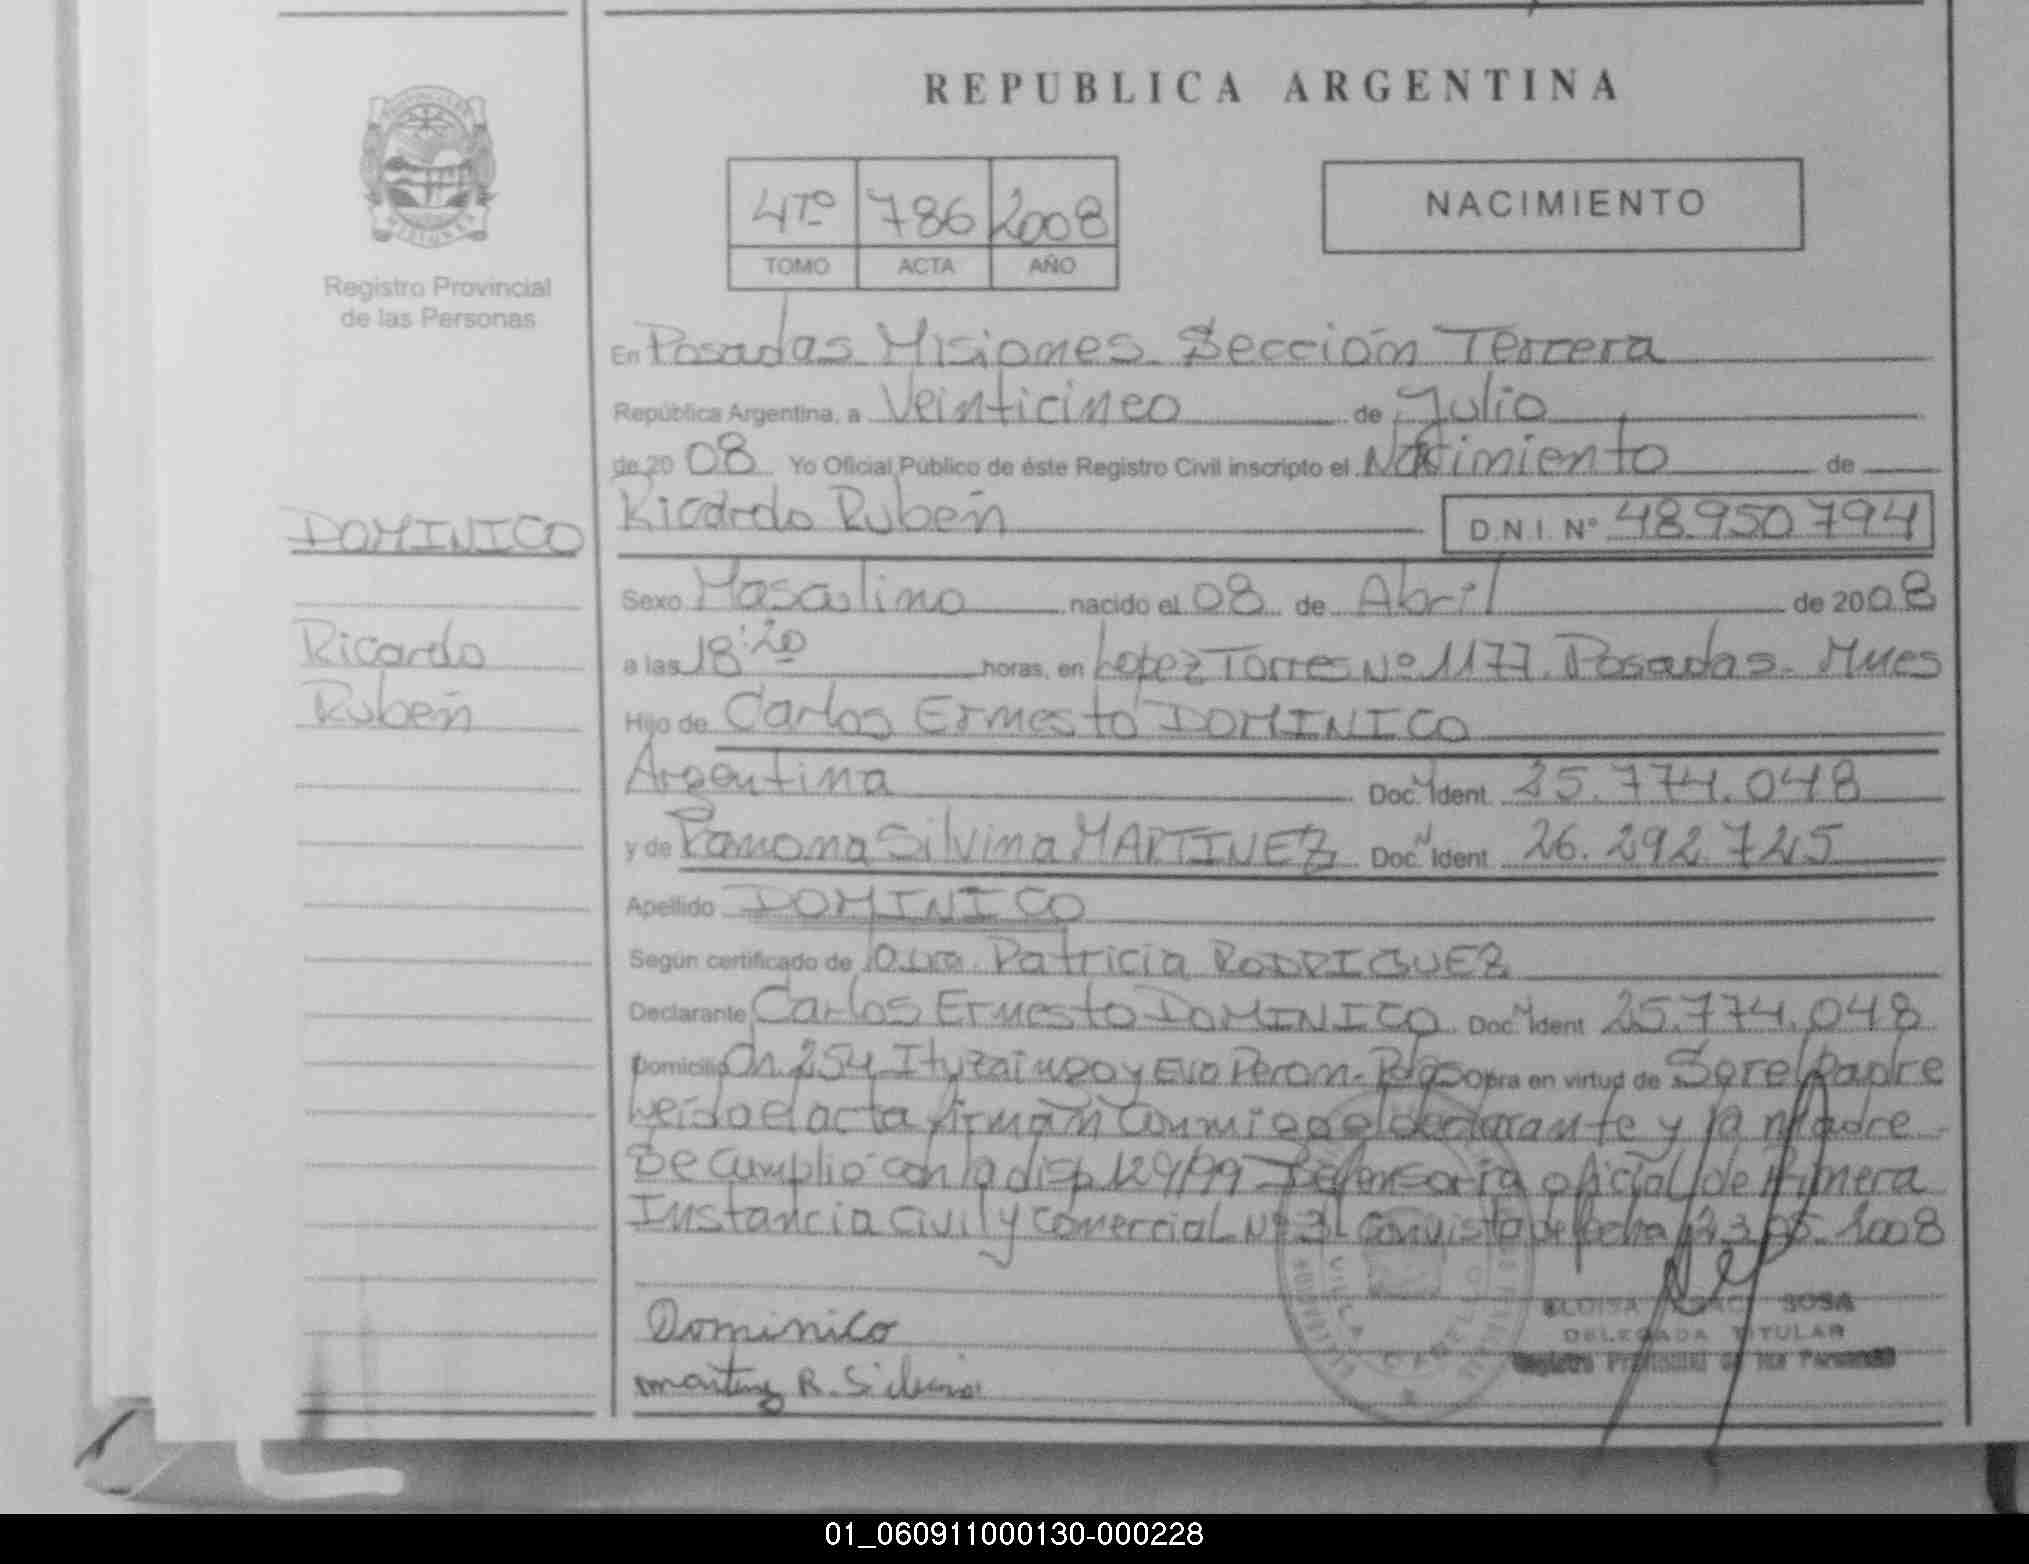 REPUBLICA ARGENTINA
4Tº 786 2008
TOMO ACTA AÑO
NACIMIENTO
Registro Provincial
de las Personas
DOMINICO
Ricardo
Rubén
En Posadas Misiones Sección Tercera
República Argentina, a Veinticinco de Julio
de 2008 Yo Oficial Público de éste Registro Civil inscripto el Nacimiento de
Ricardo Rubén D.N.I. Nº 48.950.794
Sexo Masculino nacido el 08 de Abril de 2008
a las 18:20 horas, en Lopez Torres Nº 1177. Posadas. Mnes
Hijo de Carlos Ernesto DOMINICO
Argentina Doc. N Ident. 25.774.048
y de Ramona Silvina MARTINEZ Doc. N Ident. 26.292.725
Apellido DOMINICO
Según certificado de Dra. Patricia RODRIGUEZ
Declarante Carlos Ernesto DOMINICO Doc. N Ident 25.774.048
Domicilio Ch. 254 Ituzaingo y Eva Peron - Pdas obra en virtud de Ser el Padre
Leída el acta firman conmigo el declarante y la madre
Se cumplió con la disp. 129/99 Defensoria oficial de Primera
Instancia Civil y Comercial Nº 3 Con vista de fecha 23.05.2008
Dominico
Martinez R. Silvina
ELOISA SOSA
DELEGADA TITULAR
Registro Provincial de las Personas
01_060911000130-000228